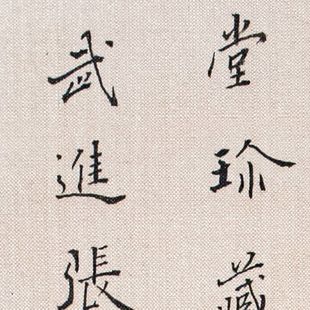 堂珍藏
武進張